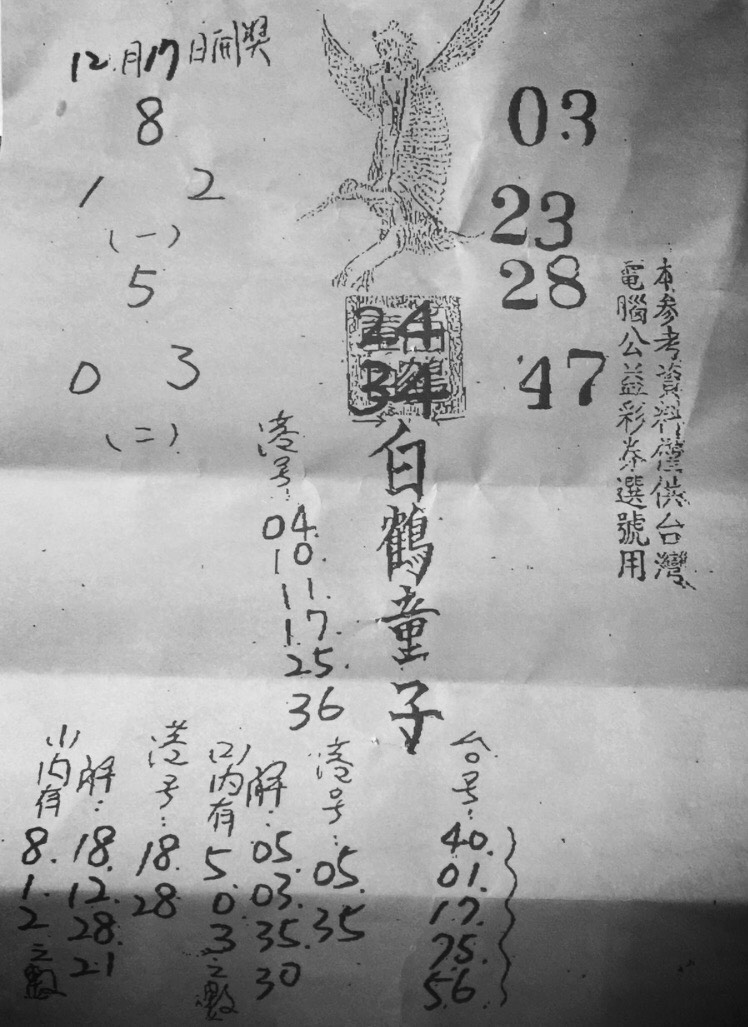 12月17日開獎
8
1 2
(一)
5
0 3
(二)
03
23
28
47
24
34
本参考資料僅供台灣
電腦公益彩券選號用
白鶴童子
港号:
04.
10.
11.
17.
25.
36
台号:
40.
01.
17.
75.
56.
港号:
05.
35
(2)内有
5.
0.
3
之數
解:
05.
03.
35.
30
港号:
18.
28
(1)内有
8.
1.
2
之數
解:
18.
12.
28.
21